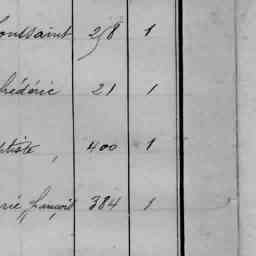 oussaint 258 1
rédéric 21 1
ptiste, 400 1
rie françois 384 1